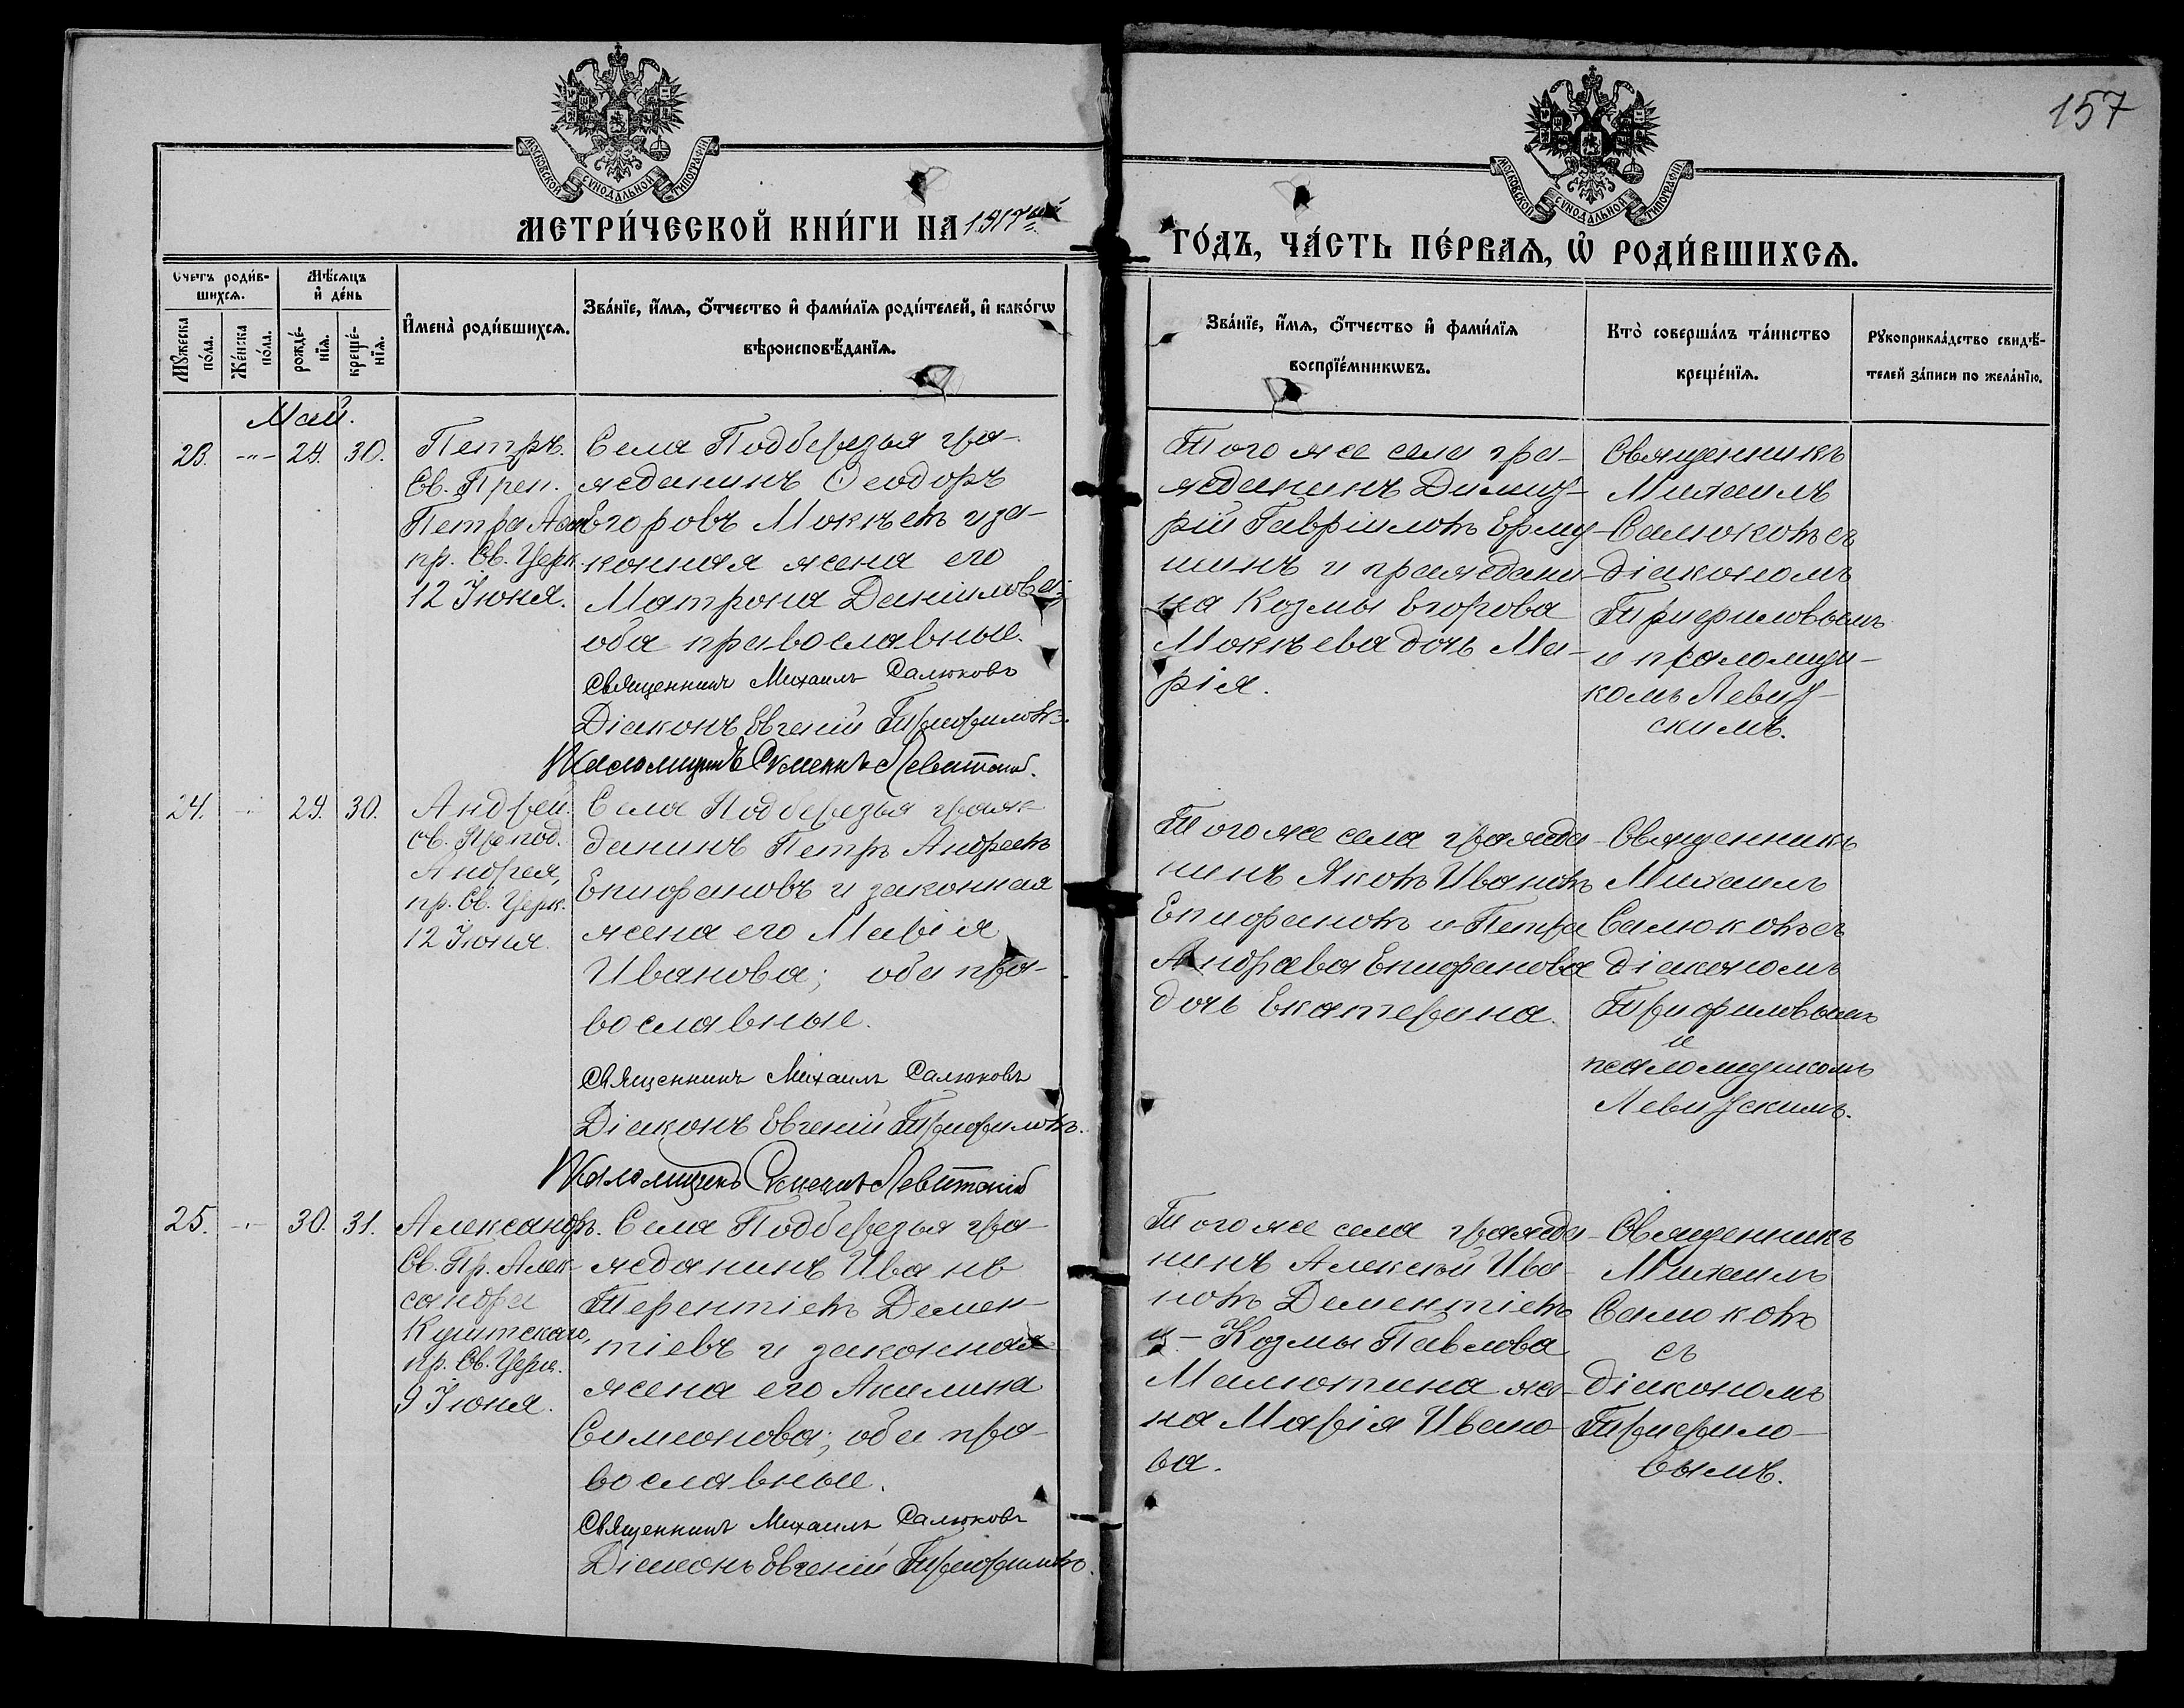 157
МОСКОВСКОЙ СУНОДАЛЬНОЙ ТИПОГРАФІИ
МОСКОВСКОЙ СУНОДАЛЬНОЙ ТИПОГРАФІИ
МЕТРИ́ЧЕСКОЙ КНИ́ГИ НА 1917ый
ГО́ДЪ, ЧА́СТЬ ПЕ́РВАѦ, Ѡ҆ РОДИ́ВШИХСѦ.
Счетъ роди́в-
шихсѧ.
Мꙋжеска
по́ла.
Же́нска
по́ла.
Мѣ́сѧцъ
и҆ де́нь
рожде́-
нїѧ.
креще́-
нїѧ.
И҆мена̀ роди́вшихсѧ.
Зва́нїе, и҆́мѧ, ѻ҆́тчество и҆ фами́лїѧ роди́телей, и҆ како́гѡ
вѣроисповѣ́данїѧ.
Зва́нїе, и҆́мѧ, ѻ҆́тчество и҆ фами́лїѧ
воспрїе́мникѡвъ.
Кто̀ соверша́лъ та́инство
креще́нїѧ.
Рꙋкоприкла́дство свидѣ́-
телей за́писи по жела́нїю.
Май.
23. -"- 29. 30.
Петръ.
Св. Преп.
Петра Аѳон
пр. Св. Церк.
12 Іюня.
Села Подберезья гра-
жданинъ Ѳеодоръ
Егоровъ Мокѣевъ и за-
конная жена его
Матрона Даниилова;
оба православные.
Священникъ Михаилъ Салюковъ
Діаконъ Евгеній Трифиловъ.
Псаломщикъ Симеонъ Левитскій.
Того же села гра-
жданинъ Димит-
рій Гавріиловъ Ерму-
шинъ и граждани-
на Козмы Егорова
Мокѣева дочь Ма-
рія.
Священникъ
Михаилъ
Салюковъ съ
діакономъ
Трифиловымъ
и псаломщи-
комъ Левит-
скимъ.
24. -"- 29. 30.
Андрей.
св. Препод.
Андрея,
пр. Св. Церк.
12 Іюня.
Села Подберезья граж-
данинъ Петръ Андреевъ
Епифановъ и законная
жена его Марія
Иванова; оба пра-
вославные.
Священникъ Михаилъ Салюковъ
Діаконъ Евгеній Трифиловъ.
Псаломщикъ Симеонъ Левитскій
Того же села гражда-
нинъ Яковъ Ивановъ
Епифановъ и Петра
Андреева Епифанова
дочь Екатерина.
Священникъ
Михаилъ
Салюковъ съ
діакономъ
Трифиловымъ
и
псаломщикомъ
Левитскимъ.
25. -"- 30. 31.
Александръ.
Св. Пр. Алек-
сандра
Куштскаго,
пр. Св. Церк.
9 Іюня.
Села Подберезья гра-
жданинъ Иванъ
Терентіевъ Демен-
тіевъ и законная
жена его Акилина
Симеонова; оба пра-
вославные.
Священникъ Михаилъ Салюковъ
Діаконъ Евгеній Трифиловъ.
Того же села гражда-
нинъ Алексѣй Ива-
новъ Дементіевъ
и - Козмы Павлова
Малютина же-
на Марія Ивано-
ва.
Священникъ
Михаилъ
Салюковъ
съ
діакономъ
Трифило-
вымъ.